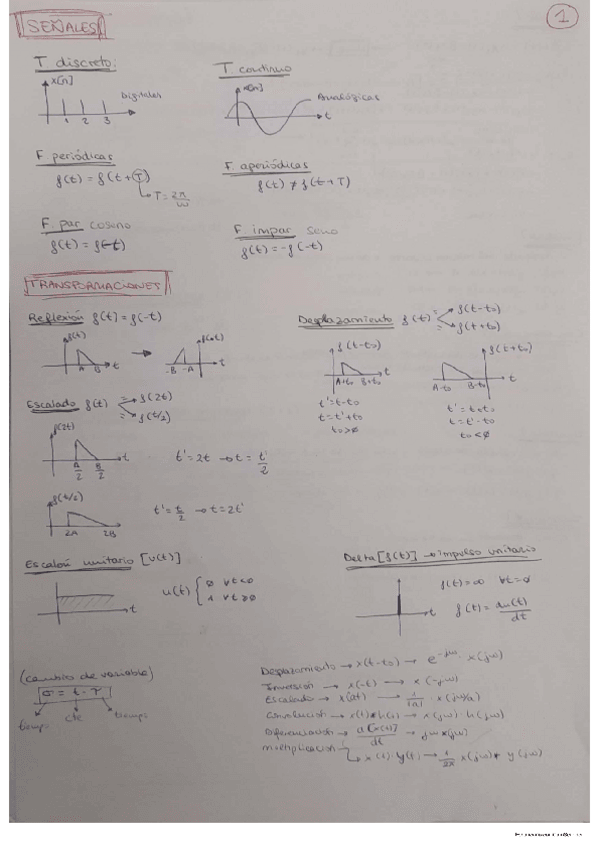 1
SEÑALES
T. discreto:
x[n]
Digitales
1 2 3
T. continuo
x[n]
Analógicas
t
F. periódicas
f(t) = f(t+T)
→T = 2π/ω
F. aperiódicas
f(t) ≠ f(t+T)
F. par coseno
f(t) = f(-t)
F. impar seno
f(t) = -f(-t)
TRANSFORMACIONES
Reflexión f(t) = f(-t)
f(t)
A B t
→
-B -A t
Desplazamiento f(t) = f(t-to)
= f(t+to)
f(t-to)
A+to B+to t
t' = t-to
t = t'+to
to>ø
f(t+to)
A-to B-to t
t' = t+to
t = t'-to
to<ø
Escalado f(t) = f(2t)
= f(t/2)
f(2t)
A/2 B/2 t
t' = 2t → t = t'/2
f(t/2)
2A 2B
t' = t/2 → t = 2t'
Escalón unitario [u(t)]
t
u(t) { ø ∀t<0
1 ∀t≥0
Delta [f(t)] → impulso unitario
t
f(t) = ∞ ∀t=ø
f(t) = du(t)/dt
(cambio de variable)
σ = t - τ
tiempo cte tiempo
Desplazamiento → x(t-to) → e^-jω · x(jω)
Inversión → x(-t) → x(-jω)
Escalado → x(at) → 1/|a| · x(jω/a)
Convolución → x(t)*h(t) → x(jω) · h(jω)
Diferenciación → d[x(t)]/dt → jω x(jω)
Multiplicación
→ x(t) · y(t) → 1/2π x(jω) * y(jω)